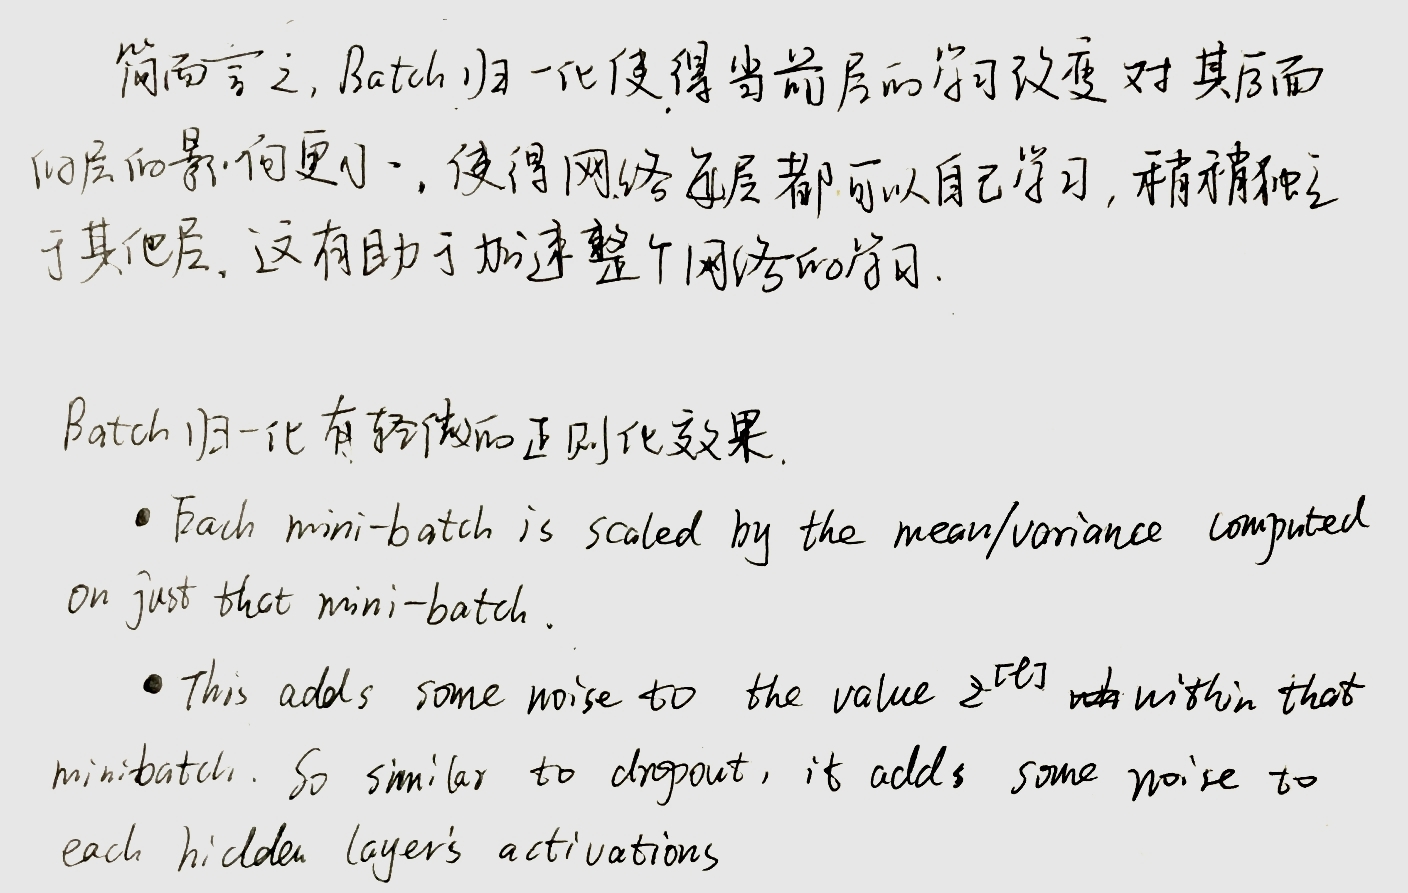 简而言之, Batch 归一化使得当前层的学习改变对其后面
的层的影响更小., 使得网络每层都可以自己学习, 稍稍独立
于其他层. 这有助于加速整个网络的学习.
Batch 归一化有轻微的正则化效果.
• Each mini-batch is scaled by the mean/variance computed
on just that mini-batch.
• This adds some noise to the value z^[l] within that
minibatch. So similar to dropout, it adds some noise to
each hidden layer's activations